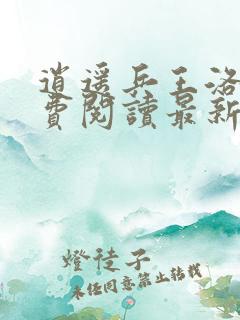 逍遥兵王洛
費閱讀最新
燈徒子
未经同意禁止转载